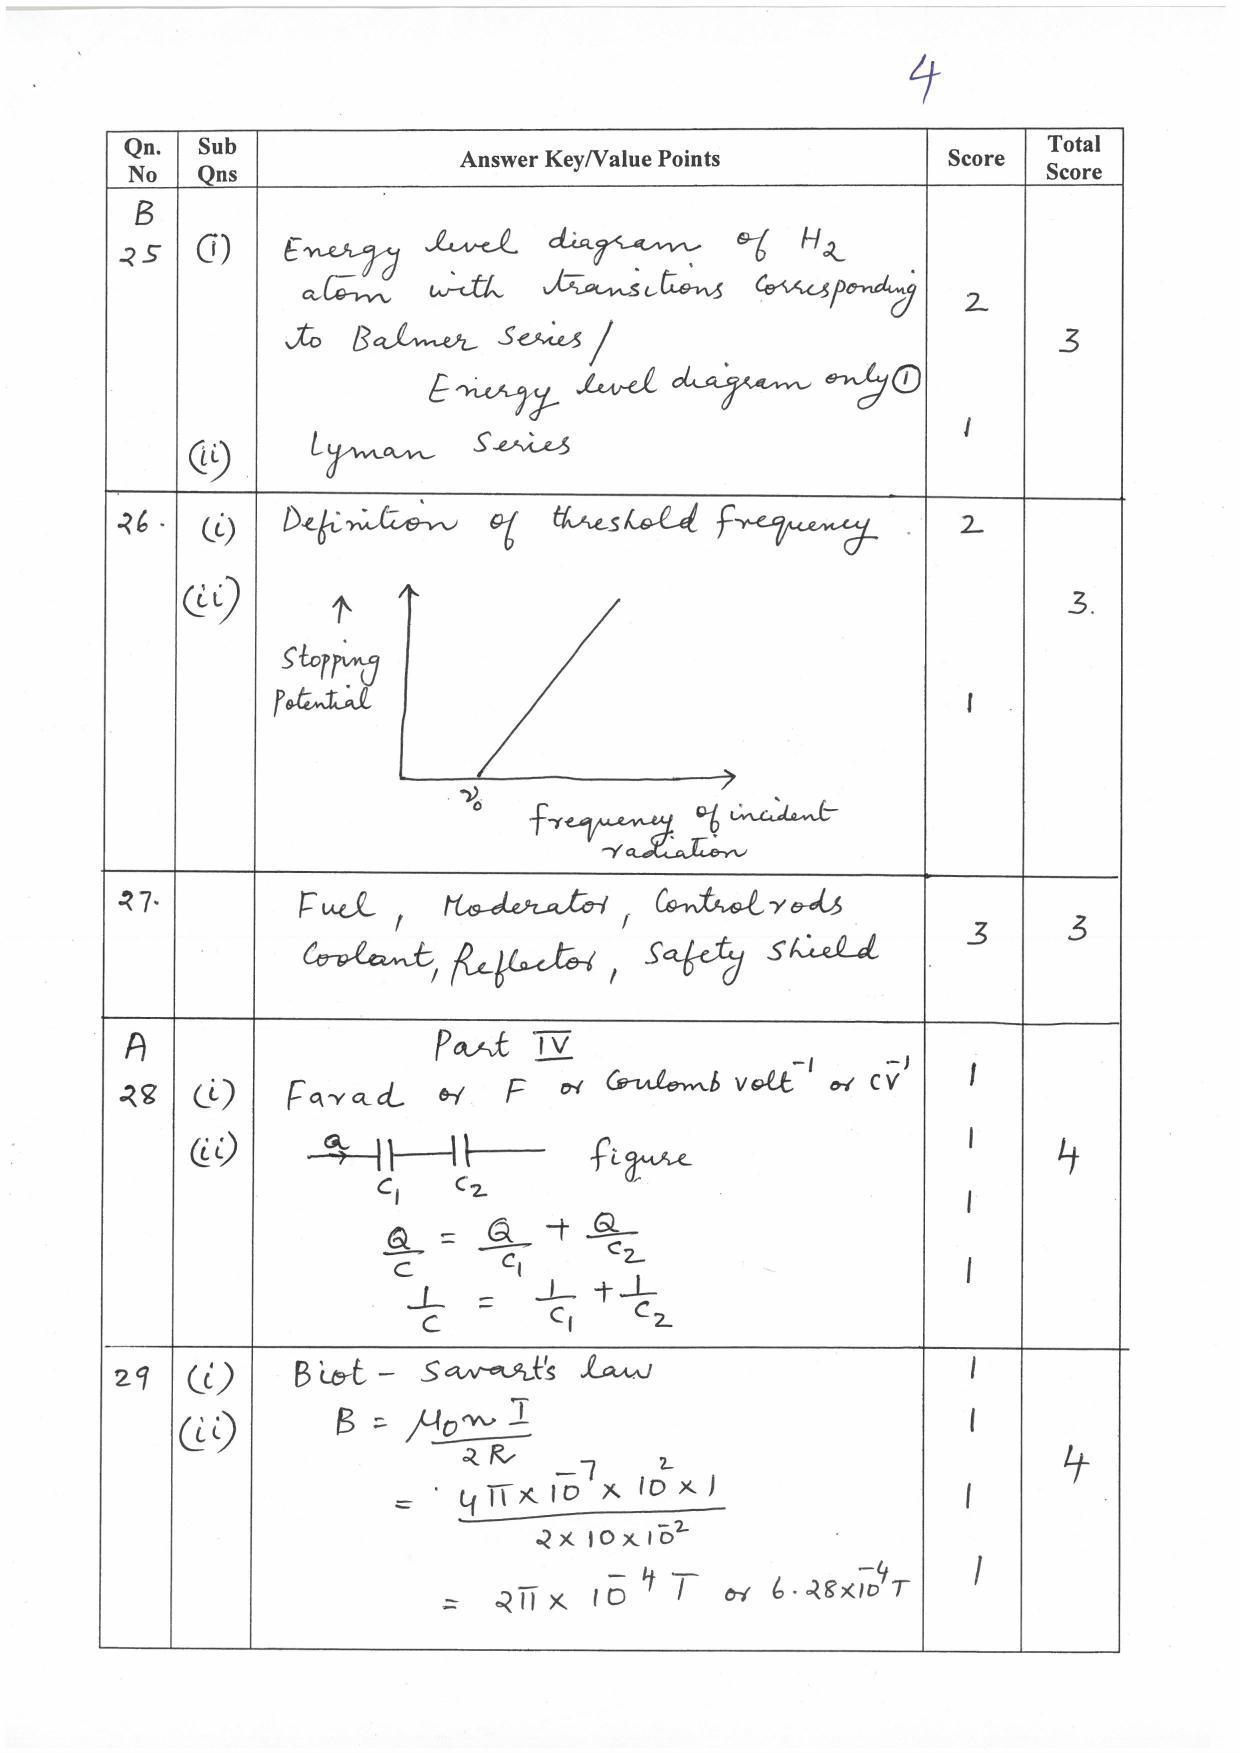 4
Qn. No | Sub Qns | Answer Key/Value Points | Score | Total Score
B
25 (i) Energy level diagram of H2
atom with transitions corresponding
to Balmer Series / 2 3
Energy level diagram only ①
(ii) Lyman Series 1
26. (i) Definition of threshold frequency. 2
(ii) ↑ 3.
Stopping
Potential 1
ν₀
frequency of incident
radiation
27. Fuel, Moderator, Control rods
Coolant, Reflector, Safety shield 3 3
A Part IV
28 (i) Farad or F or Coulomb volt⁻¹ or CV⁻¹ 1
(ii) Q figure 1 4
C₁ C₂
Q/C = Q/C₁ + Q/C₂ 1
1/C = 1/C₁ + 1/C₂ 1
29 (i) Biot - Savart's law 1
(ii) B = μ₀nI / 2R 1 4
= 4π × 10⁻⁷ × 10² × 1 / 2 × 10 × 10⁻² 1
= 2π × 10⁻⁴ T or 6.28×10⁻⁴ T 1